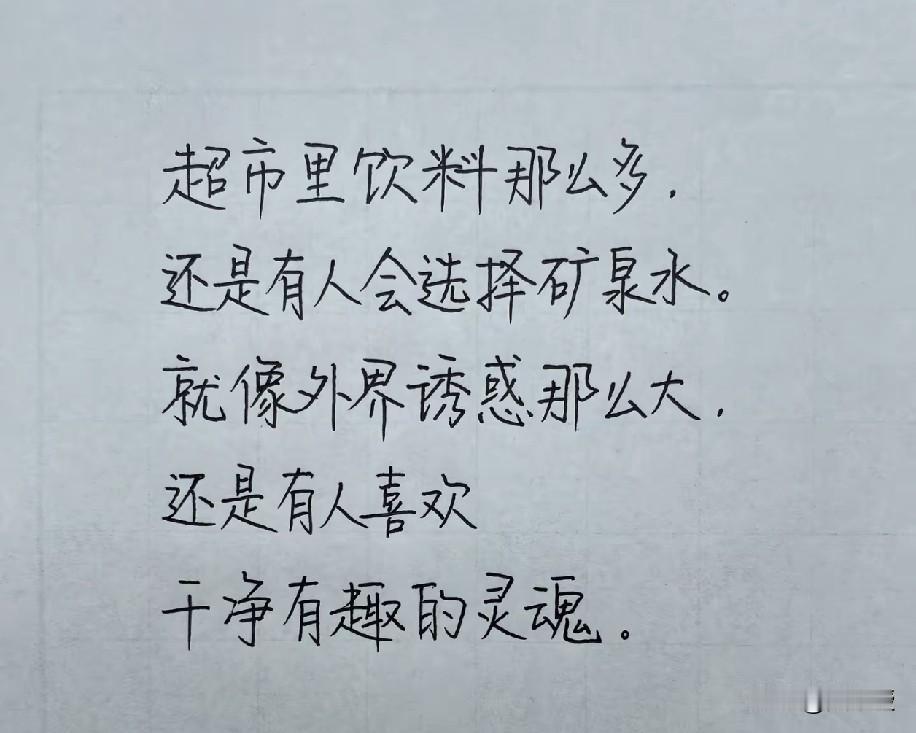 超市里饮料那么多.
还是有人会选择矿泉水。
就像外界诱惑那么大.
还是有人喜欢
干净有趣的灵魂。